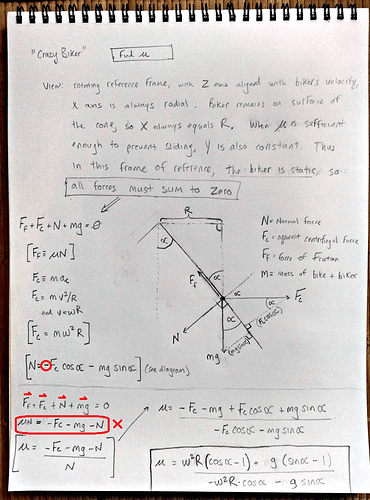 "Crazy Biker"
Find μ
View: rotating reference frame, with Z axis aligned with biker's velocity,
X axis is always radial. Biker remains on surface of
the cone, so X always equals R. When μ is sufficient
enough to prevent sliding, Y is also constant. Thus
in this frame of reference, the biker is static, so
all forces must sum to zero
F_F + F_c + N + mg = 0
[F_F = μN]
F_c = m a_c
F_c = m v²/R
and v = wR
[F_c = mω²R]
[N = -F_c cosα - mg sinα] (see diagram)
R
α
F_F
α
α
F_c
α
(F_c cosα)
N
mg
(mg sinα)
N = Normal force
F_c = apparent centrifugal force
F_F = force of friction
M = mass of bike + biker
F_F + F_c + N + mg = 0
μN = -F_c - mg - N X
[μ = (-F_c - mg - N) / N]
μ = (-F_c - mg + F_c cosα + mg sinα) / (-F_c cosα - mg sinα)
μ = (ω²R(cosα - 1) + g(sinα - 1)) / (-ω²R·cosα - g sinα)